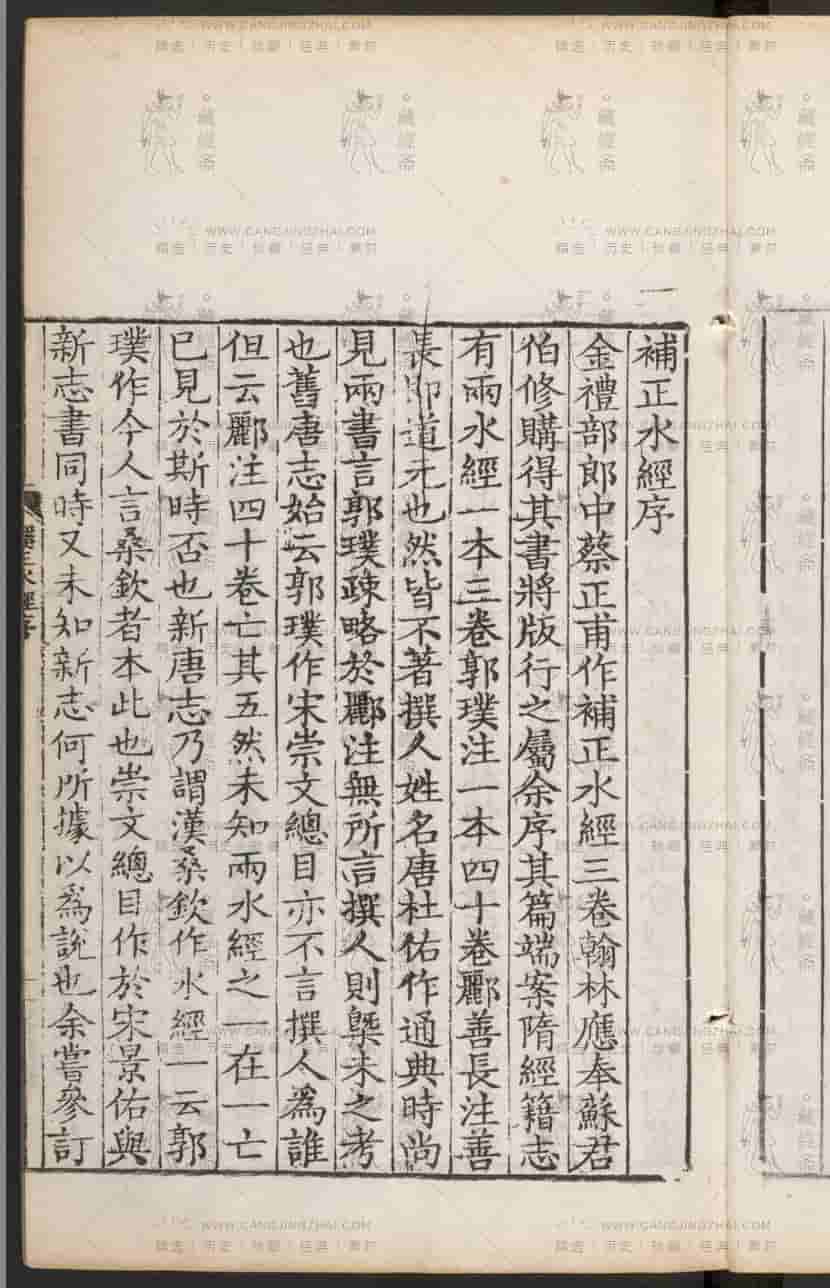 補正水經序
金禮部郎中蔡正甫作補正水經三卷翰林應奉蘇君
伯修購得其書將版行之屬余序其篇端案隋經籍志
有兩水經一本三卷郭璞注一本四十卷酈善長注善
長即道元也然皆不著撰人姓名唐杜佑作通典時尚
見兩書言郭璞疎略於酈注無所言撰人則槩未之考
也舊唐志始云郭璞作宋崇文總目亦不言撰人為誰
但云酈注四十卷亡其五然未知兩水經之一在一亡
已見於斯時否也新唐志乃謂漢桑欽作水經一云郭
璞作今人言桑欽者本此也崇文總目作於宋景佑與
新志書同時又未知新志何所據以為說也余嘗參訂
WWW.CANGJINGZHAI.COM
藏經齋